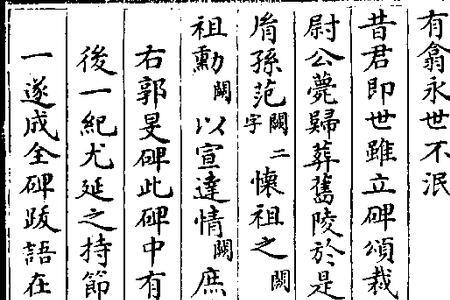 有翕永世不泯
昔君即世雖立碑頌裁
尉公薨歸葬舊陵於是
胄孫范闕二字懷祖之闕
祖勳闕以宣達情闕庶
右郭旻碑此碑中有
後一紀尤延之持節
一遂成全碑跋語在